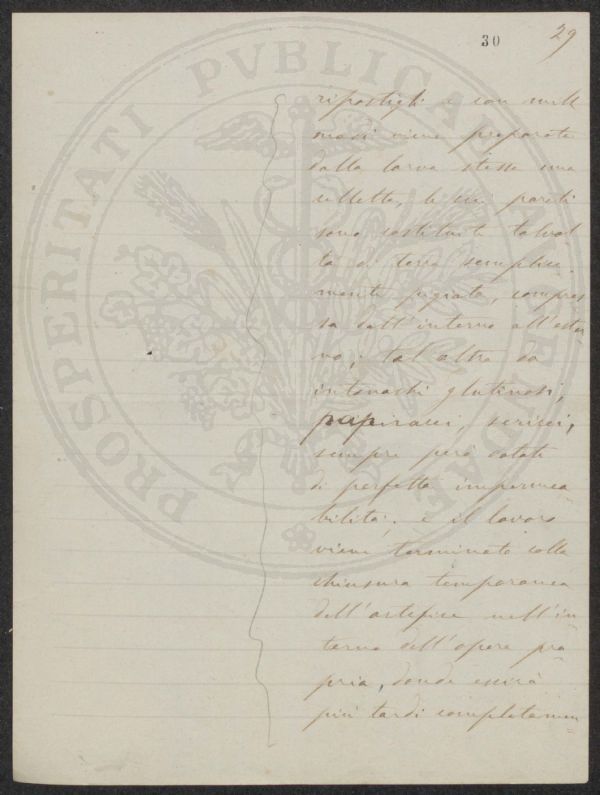 30
29
PROSPERITATI PVBLICAE AVGENDAE
ripostigli e con mille
modi viene preparata
dalla larva stessa una
celletta, le cui pareti
sono costituite talvol
ta di terra semplice
mente pigiata, compres
sa dall'interno all'ester
no; tal'altra da
intonachi glutinosi,
papiracei, sericei,
sempre però dotati
di perfetta impermea
bilità; e il lavoro
viene terminato colla
chiusura temporanea
dell'artefice nell'in
terno dell'opera pro
pria, donde escirà
più tardi completamen